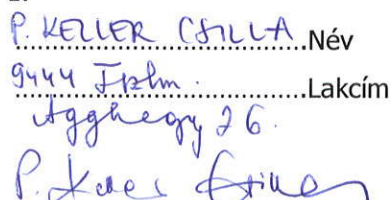 P. KELLER CSILLA Név
9444 Fszlm. Lakcím
Agghegy 26.
P. Keller Csilla